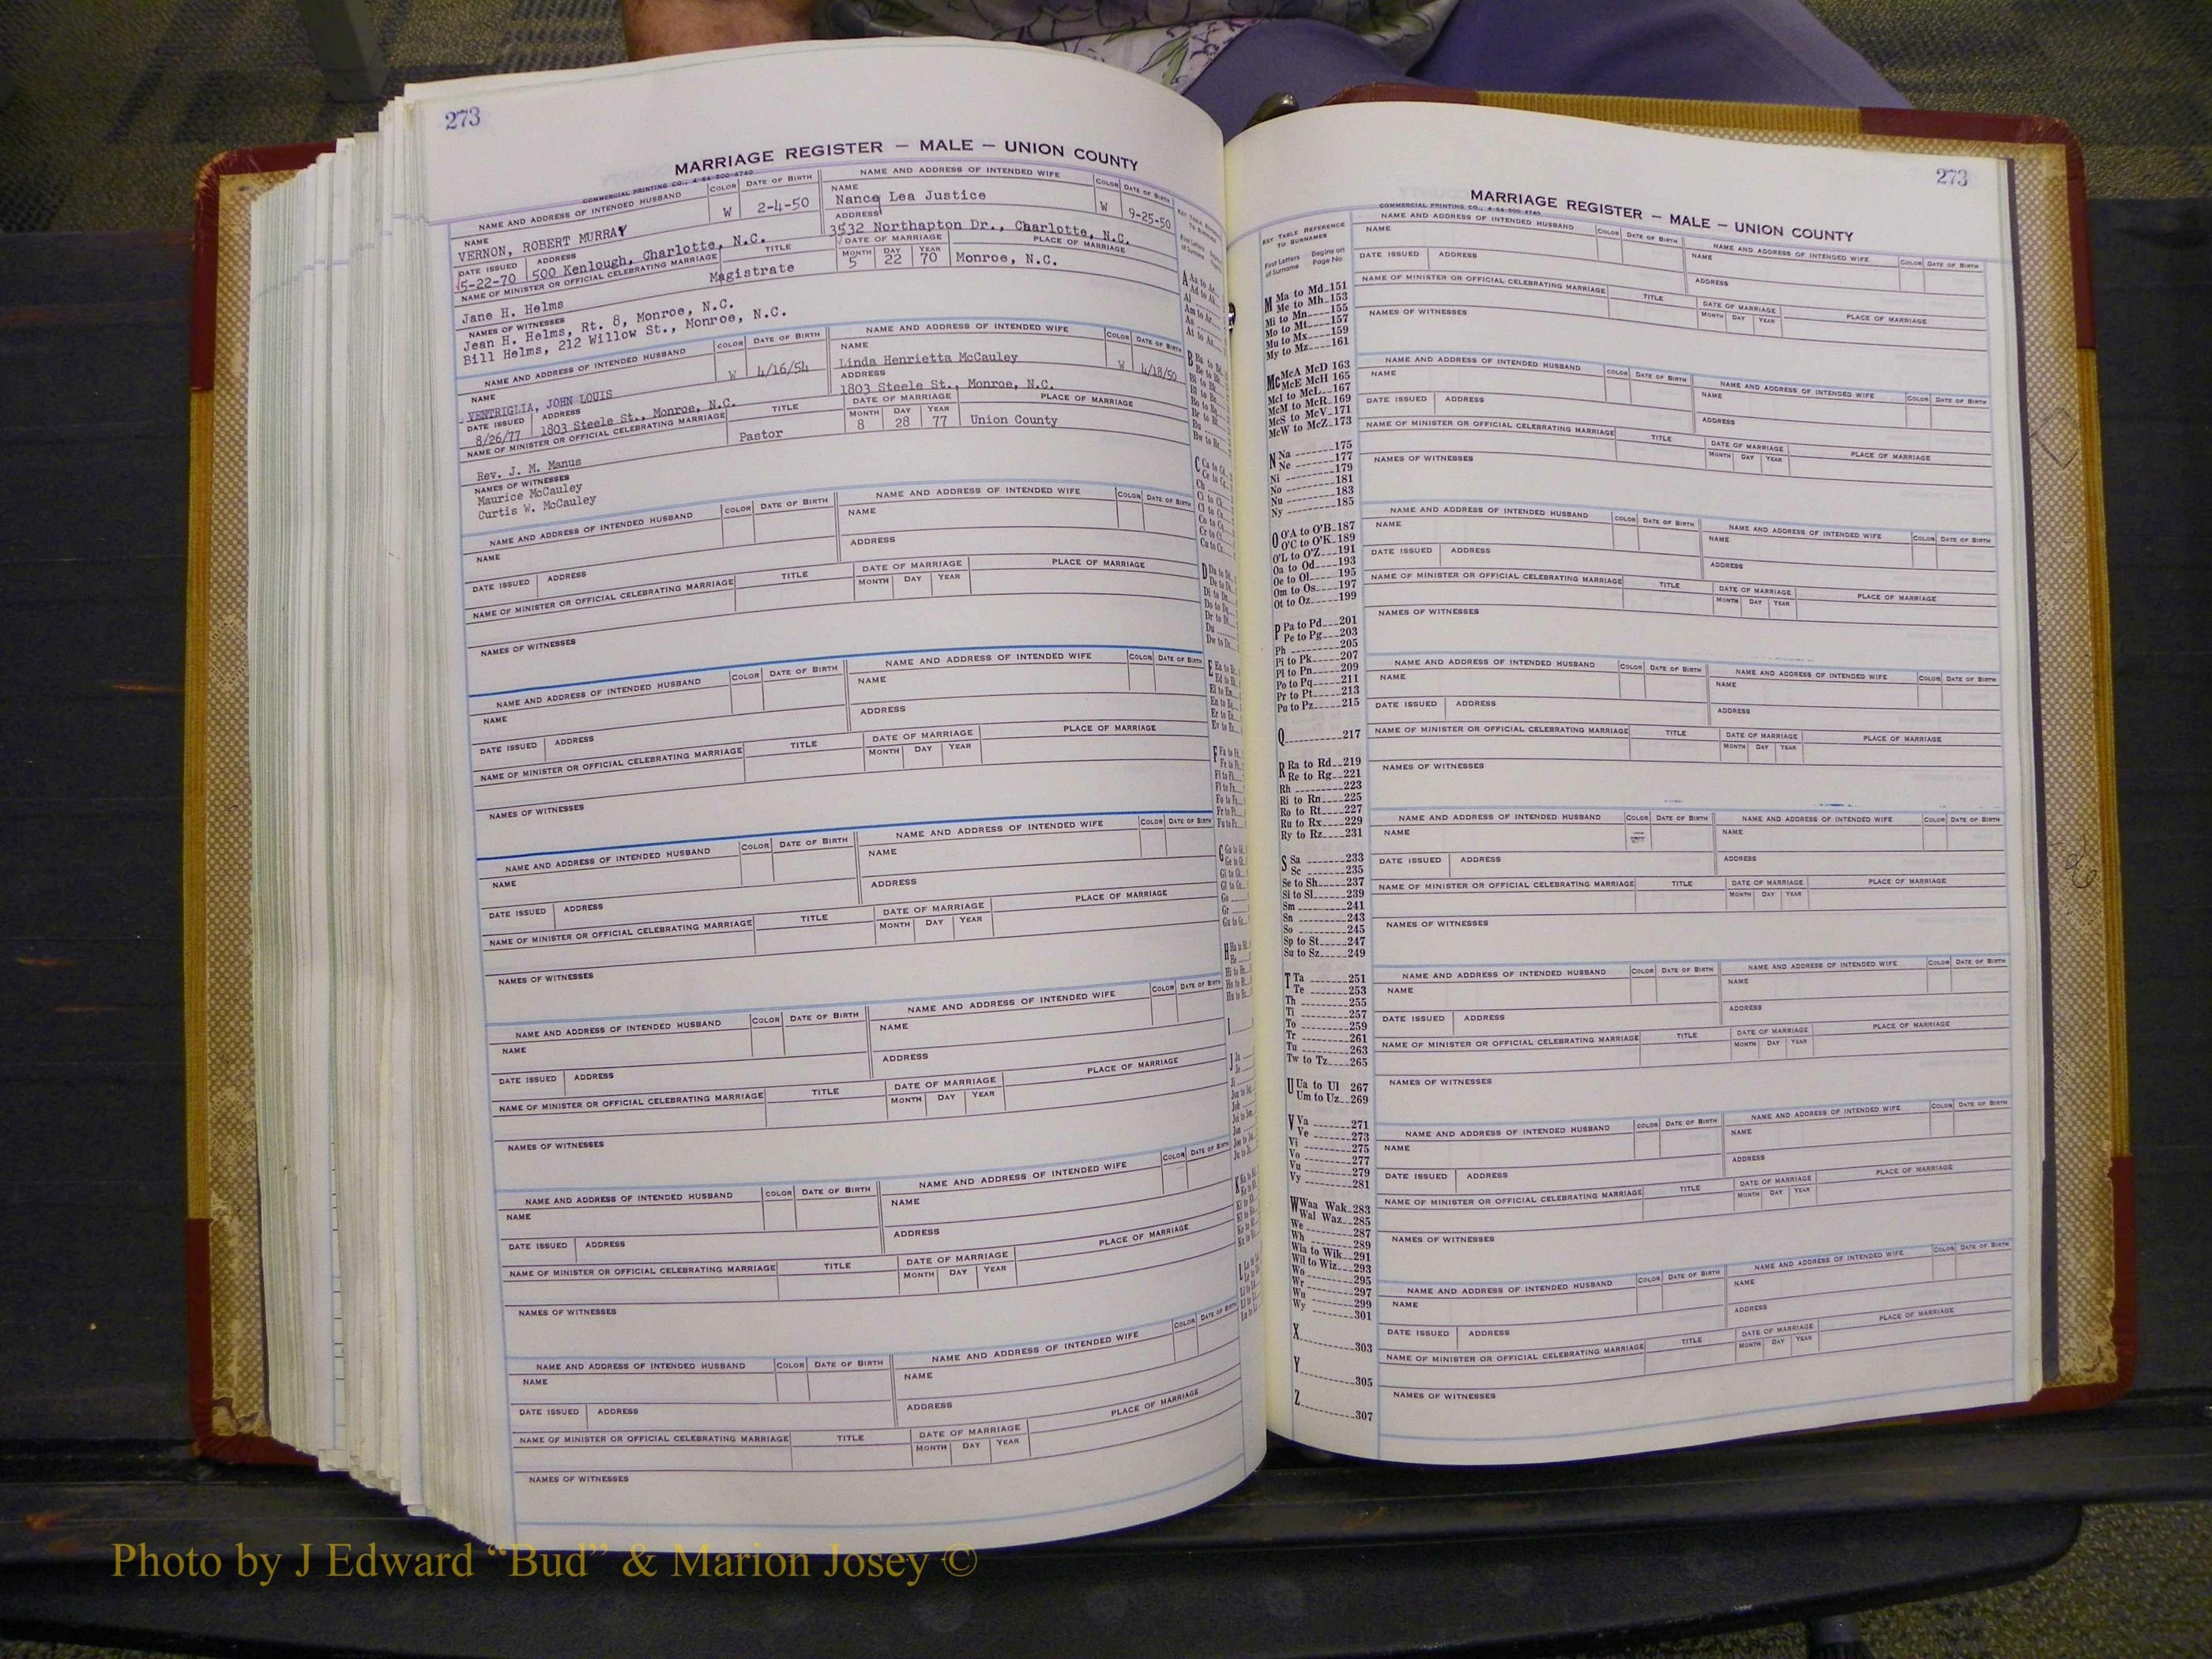 273
MARRIAGE REGISTER — MALE — UNION COUNTY
COMMERCIAL PRINTING CO., 4-54 500 4740
NAME AND ADDRESS OF INTENDED HUSBAND COLOR DATE OF BIRTH NAME AND ADDRESS OF INTENDED WIFE COLOR DATE OF BIRTH
NAME VERNON, ROBERT MURRAY W 2-4-50 NAME Lea Justice W 9-25-50
DATE ISSUED 5-22-70 ADDRESS 500 Kenlough, Charlotte, N.C. ADDRESS 3532 Northapton Dr., Charlotte, N.C.
NAME OF MINISTER OR OFFICIAL CELEBRATING MARRIAGE TITLE DATE OF MARRIAGE PLACE OF MARRIAGE
Jane H. Helms Magistrate MONTH 5 DAY 22 YEAR 70 Monroe, N.C.
NAMES OF WITNESSES
Jean H. Helms, Rt. 8, Monroe, N.C.
Bill Helms, 212 Willow St., Monroe, N.C.
NAME AND ADDRESS OF INTENDED HUSBAND COLOR DATE OF BIRTH NAME AND ADDRESS OF INTENDED WIFE COLOR DATE OF BIRTH
NAME VENTRIGLIA, JOHN LOUIS W 4/16/54 NAME Linda Henrietta McCauley W 4/18/50
DATE ISSUED 8/26/77 ADDRESS 1803 Steele St., Monroe, N.C. ADDRESS 1803 Steele St., Monroe, N.C.
NAME OF MINISTER OR OFFICIAL CELEBRATING MARRIAGE TITLE DATE OF MARRIAGE PLACE OF MARRIAGE
Rev. J. M. Manus Pastor MONTH 8 DAY 28 YEAR 77 Union County
NAMES OF WITNESSES
Maurice McCauley
Curtis W. McCauley
NAME AND ADDRESS OF INTENDED HUSBAND COLOR DATE OF BIRTH NAME AND ADDRESS OF INTENDED WIFE COLOR DATE OF BIRTH
NAME NAME
DATE ISSUED ADDRESS ADDRESS
NAME OF MINISTER OR OFFICIAL CELEBRATING MARRIAGE TITLE DATE OF MARRIAGE MONTH DAY YEAR PLACE OF MARRIAGE
NAMES OF WITNESSES
NAME AND ADDRESS OF INTENDED HUSBAND COLOR DATE OF BIRTH NAME AND ADDRESS OF INTENDED WIFE COLOR DATE OF BIRTH
NAME NAME
DATE ISSUED ADDRESS ADDRESS
NAME OF MINISTER OR OFFICIAL CELEBRATING MARRIAGE TITLE DATE OF MARRIAGE MONTH DAY YEAR PLACE OF MARRIAGE
NAMES OF WITNESSES
NAME AND ADDRESS OF INTENDED HUSBAND COLOR DATE OF BIRTH NAME AND ADDRESS OF INTENDED WIFE COLOR DATE OF BIRTH
NAME NAME
DATE ISSUED ADDRESS ADDRESS
NAME OF MINISTER OR OFFICIAL CELEBRATING MARRIAGE TITLE DATE OF MARRIAGE MONTH DAY YEAR PLACE OF MARRIAGE
NAMES OF WITNESSES
NAME AND ADDRESS OF INTENDED HUSBAND COLOR DATE OF BIRTH NAME AND ADDRESS OF INTENDED WIFE COLOR DATE OF BIRTH
NAME NAME
DATE ISSUED ADDRESS ADDRESS
NAME OF MINISTER OR OFFICIAL CELEBRATING MARRIAGE TITLE DATE OF MARRIAGE MONTH DAY YEAR PLACE OF MARRIAGE
NAMES OF WITNESSES
NAME AND ADDRESS OF INTENDED HUSBAND COLOR DATE OF BIRTH NAME AND ADDRESS OF INTENDED WIFE COLOR DATE OF BIRTH
NAME NAME
DATE ISSUED ADDRESS ADDRESS
NAME OF MINISTER OR OFFICIAL CELEBRATING MARRIAGE TITLE DATE OF MARRIAGE MONTH DAY YEAR PLACE OF MARRIAGE
NAMES OF WITNESSES
NAME AND ADDRESS OF INTENDED HUSBAND COLOR DATE OF BIRTH NAME AND ADDRESS OF INTENDED WIFE COLOR DATE OF BIRTH
NAME NAME
DATE ISSUED ADDRESS ADDRESS
NAME OF MINISTER OR OFFICIAL CELEBRATING MARRIAGE TITLE DATE OF MARRIAGE MONTH DAY YEAR PLACE OF MARRIAGE
NAMES OF WITNESSES
273
MARRIAGE REGISTER — MALE — UNION COUNTY
COMMERCIAL PRINTING CO., 4-54 500 4740
KEY TABLE REFERENCE
TO SURNAMES
First Letters of Surname Begins on Page No.
M Ma to Md 151
Me to Mh 153
Mi to Mn 155
Mo to Mt 157
Mu to Mx 159
My to Mz 161
Mc McA McD 163
McE McH 165
McI to McL 167
McM to McR 169
McS to McV 171
McW to McZ 173
N Na 175
Ne 177
Ni 179
No 181
Nu 183
Ny 185
O O'A to O'B 187
O'C to O'K 189
O'L to O'Z 191
Oa to Od 193
Oe to Ol 195
Om to Os 197
Ot to Oz 199
P Pa to Pd 201
Pe to Pg 203
Ph 205
Pi to Pk 207
Pl to Pn 209
Po to Pq 211
Pr to Pt 213
Pu to Pz 215
Q 217
R Ra to Rd 219
Re to Rg 221
Rh 223
Ri to Rn 225
Ro to Rt 227
Ru to Rx 229
Ry to Rz 231
S Sa 233
Sc 235
Se to Sh 237
Si to Sl 239
Sm 241
Sn 243
So 245
Sp to St 247
Su to Sz 249
T Ta 251
Te 253
Th 255
Ti 257
To 259
Tr 261
Tu 263
Tw to Tz 265
U Ua to Ul 267
Um to Uz 269
V Va 271
Ve 273
Vi 275
Vo 277
Vu 279
Vy 281
W Waa Wak 283
Wal Waz 285
We 287
Wh 289
Wia to Wik 291
Wil to Wiz 293
Wo 295
Wr 297
Wu 299
Wy 301
X 303
Y 305
Z 307
NAME AND ADDRESS OF INTENDED HUSBAND COLOR DATE OF BIRTH NAME AND ADDRESS OF INTENDED WIFE COLOR DATE OF BIRTH
NAME NAME
DATE ISSUED ADDRESS ADDRESS
NAME OF MINISTER OR OFFICIAL CELEBRATING MARRIAGE TITLE DATE OF MARRIAGE MONTH DAY YEAR PLACE OF MARRIAGE
NAMES OF WITNESSES
NAME AND ADDRESS OF INTENDED HUSBAND COLOR DATE OF BIRTH NAME AND ADDRESS OF INTENDED WIFE COLOR DATE OF BIRTH
NAME NAME
DATE ISSUED ADDRESS ADDRESS
NAME OF MINISTER OR OFFICIAL CELEBRATING MARRIAGE TITLE DATE OF MARRIAGE MONTH DAY YEAR PLACE OF MARRIAGE
NAMES OF WITNESSES
NAME AND ADDRESS OF INTENDED HUSBAND COLOR DATE OF BIRTH NAME AND ADDRESS OF INTENDED WIFE COLOR DATE OF BIRTH
NAME NAME
DATE ISSUED ADDRESS ADDRESS
NAME OF MINISTER OR OFFICIAL CELEBRATING MARRIAGE TITLE DATE OF MARRIAGE MONTH DAY YEAR PLACE OF MARRIAGE
NAMES OF WITNESSES
NAME AND ADDRESS OF INTENDED HUSBAND COLOR DATE OF BIRTH NAME AND ADDRESS OF INTENDED WIFE COLOR DATE OF BIRTH
NAME NAME
DATE ISSUED ADDRESS ADDRESS
NAME OF MINISTER OR OFFICIAL CELEBRATING MARRIAGE TITLE DATE OF MARRIAGE MONTH DAY YEAR PLACE OF MARRIAGE
NAMES OF WITNESSES
NAME AND ADDRESS OF INTENDED HUSBAND COLOR DATE OF BIRTH NAME AND ADDRESS OF INTENDED WIFE COLOR DATE OF BIRTH
NAME NAME
DATE ISSUED ADDRESS ADDRESS
NAME OF MINISTER OR OFFICIAL CELEBRATING MARRIAGE TITLE DATE OF MARRIAGE MONTH DAY YEAR PLACE OF MARRIAGE
NAMES OF WITNESSES
NAME AND ADDRESS OF INTENDED HUSBAND COLOR DATE OF BIRTH NAME AND ADDRESS OF INTENDED WIFE COLOR DATE OF BIRTH
NAME NAME
DATE ISSUED ADDRESS ADDRESS
NAME OF MINISTER OR OFFICIAL CELEBRATING MARRIAGE TITLE DATE OF MARRIAGE MONTH DAY YEAR PLACE OF MARRIAGE
NAMES OF WITNESSES
NAME AND ADDRESS OF INTENDED HUSBAND COLOR DATE OF BIRTH NAME AND ADDRESS OF INTENDED WIFE COLOR DATE OF BIRTH
NAME NAME
DATE ISSUED ADDRESS ADDRESS
NAME OF MINISTER OR OFFICIAL CELEBRATING MARRIAGE TITLE DATE OF MARRIAGE MONTH DAY YEAR PLACE OF MARRIAGE
NAMES OF WITNESSES
NAME AND ADDRESS OF INTENDED HUSBAND COLOR DATE OF BIRTH NAME AND ADDRESS OF INTENDED WIFE COLOR DATE OF BIRTH
NAME NAME
DATE ISSUED ADDRESS ADDRESS
NAME OF MINISTER OR OFFICIAL CELEBRATING MARRIAGE TITLE DATE OF MARRIAGE MONTH DAY YEAR PLACE OF MARRIAGE
NAMES OF WITNESSES
Photo by J Edward “Bud” & Marion Josey ©